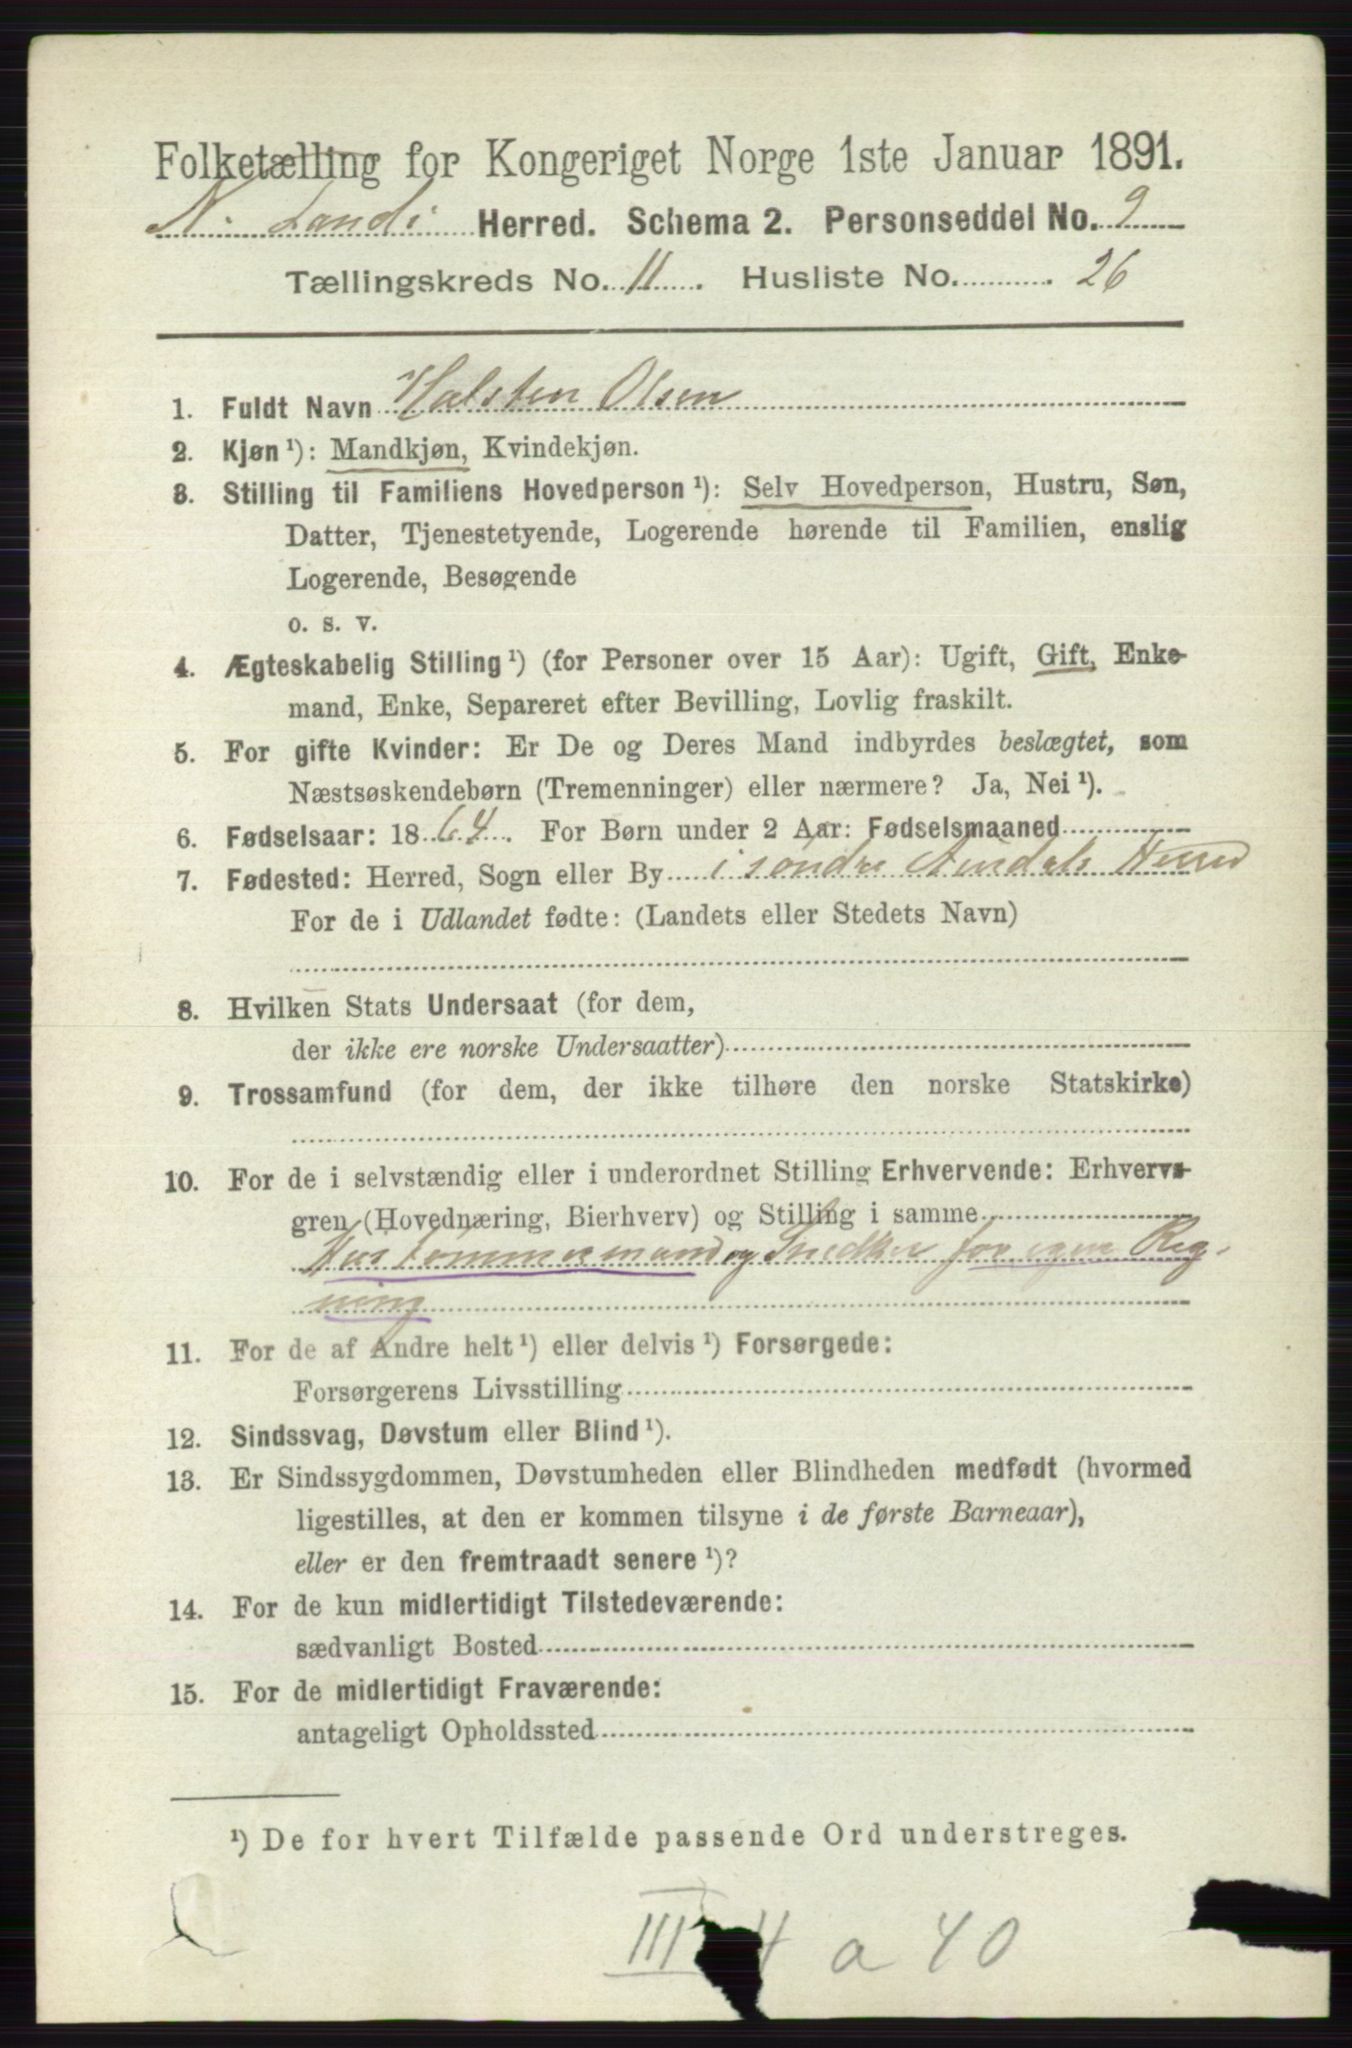 Folketælling for Kongeriget Norge 1ste Januar 1891.
N. Landi Herred. Schema 2. Personseddel No. 9
Tællingskreds No. 11. Husliste No. 26
1. Fuldt Navn Halsten Olsen
2. Kjøn ¹): Mandkjøn, Kvindekjøn.
3. Stilling til Familiens Hovedperson ¹): Selv Hovedperson, Hustru, Søn,
Datter, Tjenestetyende, Logerende hørende til Familien, enslig
Logerende, Besøgende
o. s. v.
4. Ægteskabelig Stilling ¹) (for Personer over 15 Aar): Ugift, Gift, Enke-
mand, Enke, Separeret efter Bevilling, Lovlig fraskilt.
5. For gifte Kvinder: Er De og Deres Mand indbyrdes beslægtet, som
Næstsøskendebørn (Tremenninger) eller nærmere? Ja, Nei ¹).
6. Fødselsaar: 1864. For Børn under 2 Aar: Fødselsmaaned
7. Fødested: Herred, Sogn eller By i søndre Aurdals Herred
For de i Udlandet fødte: (Landets eller Stedets Navn)
8. Hvilken Stats Undersaat (for dem,
der ikke ere norske Undersaatter)
9. Trossamfund (for dem, der ikke tilhøre den norske Statskirke)
10. For de i selvstændig eller i underordnet Stilling Erhvervende: Erhvervs-
gren (Hovednæring, Bierhverv) og Stilling i samme
Hustømmermand og Snedker for egen Reg-
ning
11. For de af Andre helt ¹) eller delvis ¹) Forsørgede:
Forsørgerens Livsstilling
12. Sindssvag, Døvstum eller Blind ¹).
13. Er Sindssygdommen, Døvstumheden eller Blindheden medfødt (hvormed
ligestilles, at den er kommen tilsyne i de første Barneaar),
eller er den fremtraadt senere ¹)?
14. For de kun midlertidigt Tilstedeværende:
sædvanligt Bosted
15. For de midlertidigt Fraværende:
antageligt Opholdssted
¹) De for hvert Tilfælde passende Ord understreges.
III 4 a 40